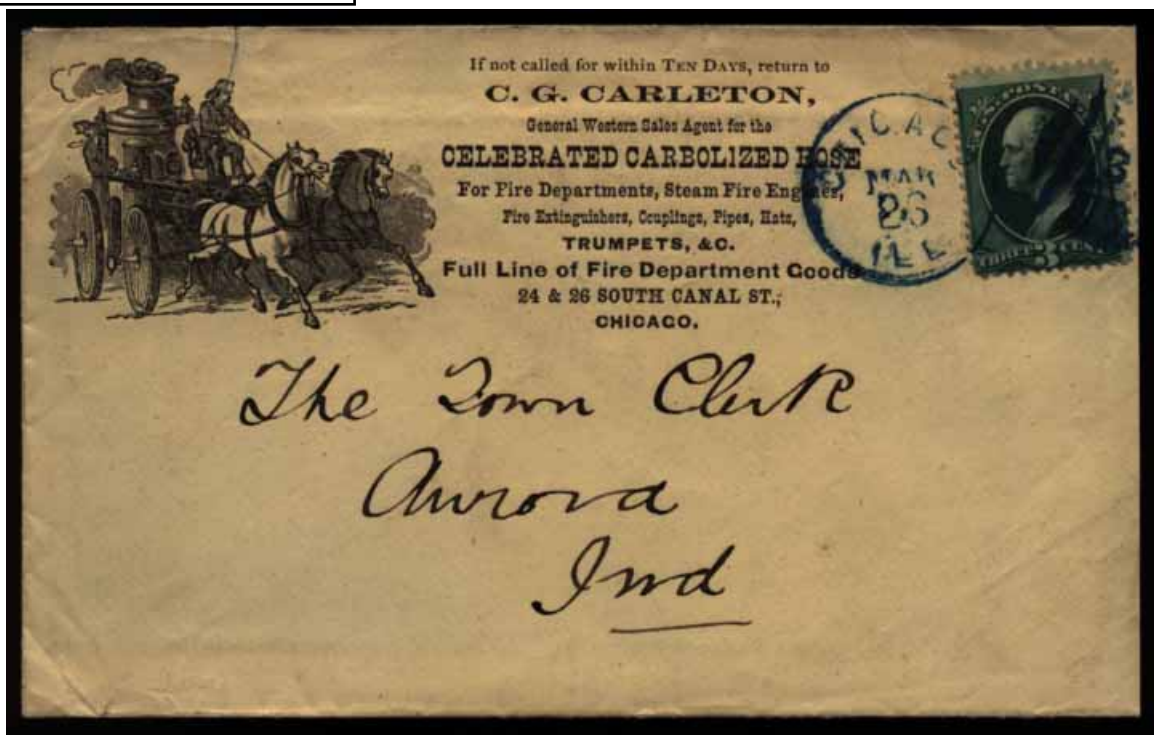 If not called for within TEN DAYS, return to
C. G. CARLETON,
General Western Sales Agent for the
CELEBRATED CARBOLIZED HOSE
For Fire Departments, Steam Fire Engines,
Fire Extinguishers, Couplings, Pipes, Hats,
TRUMPETS, &C.
Full Line of Fire Department Goods
24 & 26 SOUTH CANAL ST.,
CHICAGO.
CHICAGO
MAR
26
ILL
The Town Clerk
Aurora
Ind